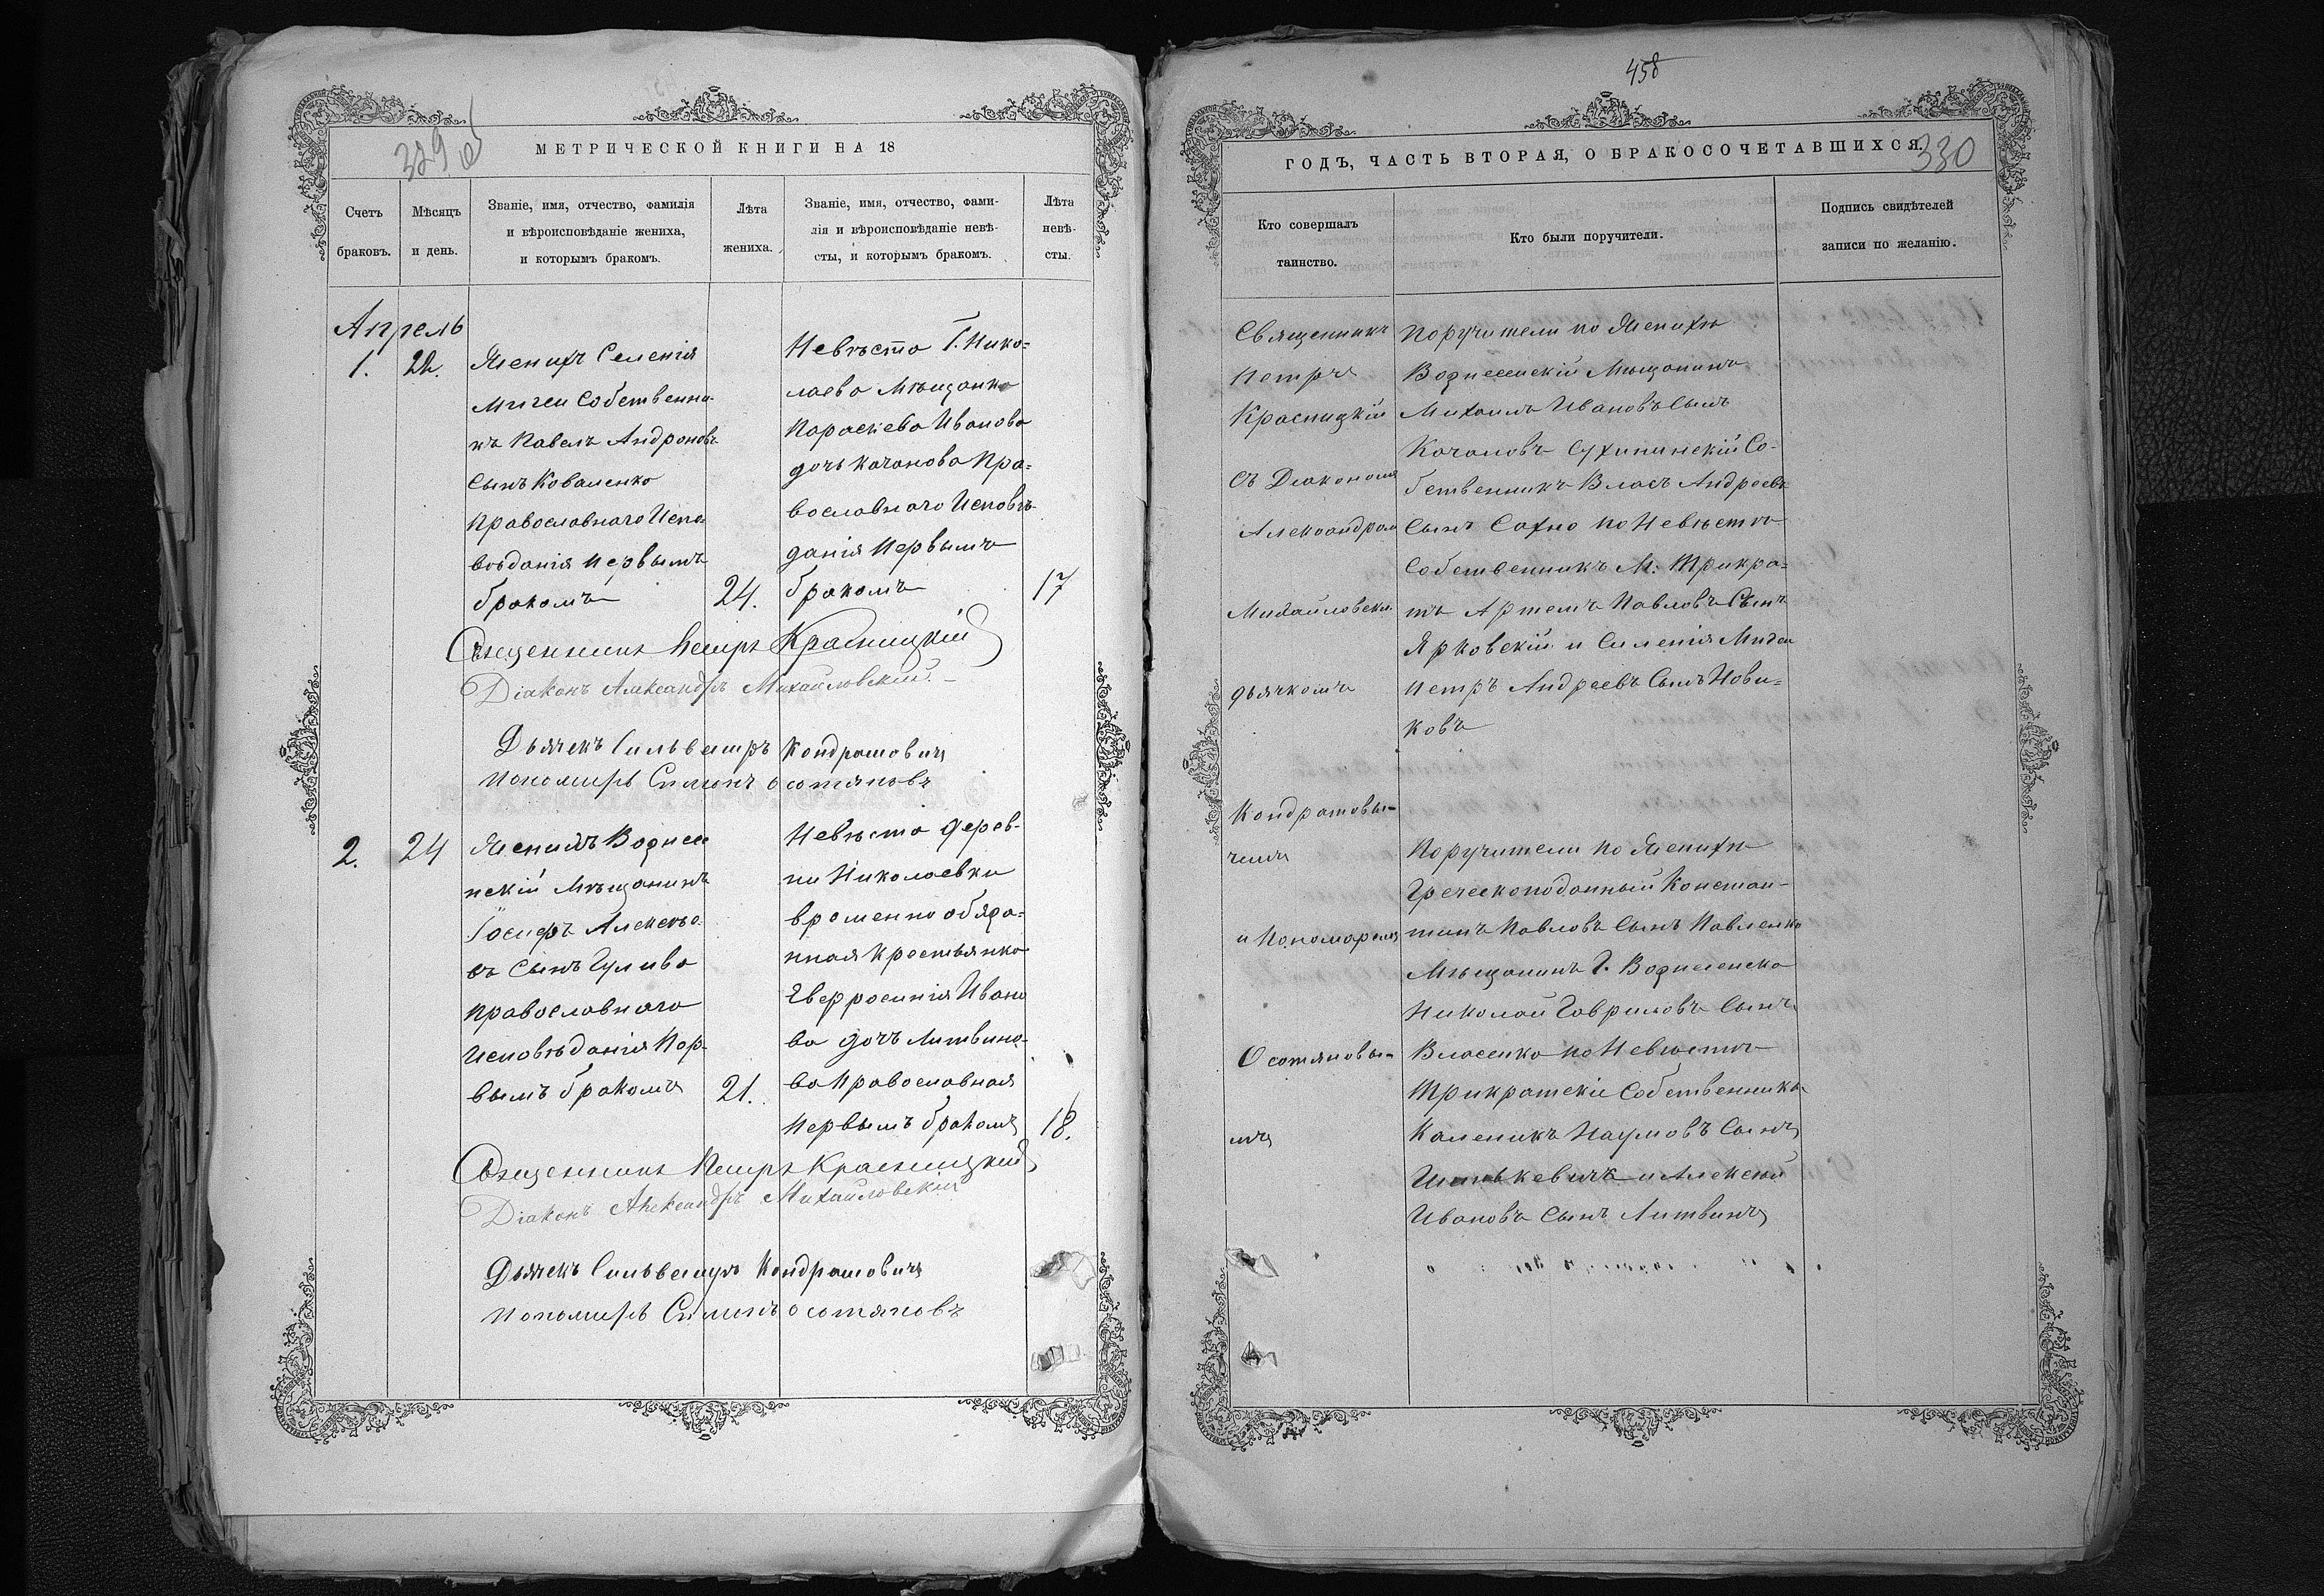 329 об
МЕТРИЧЕСКОЙ КНИГИ НА 18
Счетъ браковъ.
Мѣсяцъ и день.
Званіе, имя, отчество, фамилія
и вѣроисповѣданіе жениха,
и которымъ бракомъ.
Лѣта жениха.
Званіе, имя, отчество, фами-
лія и вѣроисповѣданіе невѣ-
сты, и которымъ бракомъ.
Лѣта невѣ-
сты.
Апрель
1.
22.
Женихъ Селенія
Мигеи Собственни-
къ Павелъ Андроновъ
Сынъ Коваленко
Православнаго Испо-
вѣданія первымъ
бракомъ
24.
Невѣста Г. Нико-
лаева Мѣщанка
Параскева Иванова
дочь Качанова Пра-
вославнаго Исповѣ-
данія Первымъ
бракомъ
17
Священникъ Петръ Красницкій
Діаконъ Александръ Михайловскій.
Дьячекъ Сильвестръ Кондратовичъ
Пономарь Симонъ Остяновъ
2.
24
Женихъ Вознесе
нскій Мѣщанинъ
Іосифъ Алексѣе-
въ Сынъ Гулива
Православнаго
Исповѣданія Пер-
вымъ бракомъ
21.
Невѣста дерев-
ни Николаевки
временно обяза-
нная крестьянка
Евфросинія Ивано
ва дочъ Литвино-
ва Православная
Первымъ бракомъ
18.
Священникъ Петръ Красницкій
Діаконъ Александръ Михайловскій
Дьячекъ Сильвестръ Кондратовичъ
Пономарь Симонъ Остяновъ
458
330
ГОДЪ, ЧАСТЬ ВТОРАЯ, О БРАКОСОЧЕТАВШИХСЯ.
Кто совершалъ
таинство.
Кто были поручители.
Подпись свидѣтелей
записи по желанію.
Священникъ
Петръ
Красницкій
Съ Діакономъ
Александром
Михайловски
дьячкомъ
Кондратови-
чемъ
и Пономаремъ
мъ
Поручители по Женихѣ
Вознесенскій Мѣщанинъ
Михаилъ Ивановъ Сынъ
Качановъ Сухининскій Со-
бственникъ Власъ Андреевъ
Сынъ Сахно по Невѣстѣ
Собственникъ М: Трикра-
тъ Артемъ Павловъ Сынъ
Ярковскій и Силенія Мигеи
Петръ Андреевъ Сынъ Нови-
ковъ
Поручители по Женихѣ
Греческоподанный Констан-
тинъ Павловъ Сынъ Павленко
Мѣщанинъ Г. Вознесенска
Николай Гавриловъ Сынъ
Власенко по Невѣстѣ
Трикратскіе Собственники
Каленикъ Наумовъ Сынъ
и Алексѣй
Ивановъ Сынъ Литвинъ